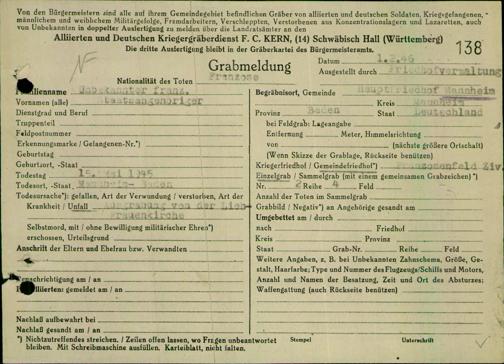 Von den Bürgermeistern sind alle auf ihrem Gemeindegebiet befindlichen Gräber von alliierten und deutschen Soldaten, Kriegsgefangenen,
männlichem und weiblichem Militärgefolge, Fremdarbeitern, Verschleppten, Verstorbenen aus Konzentrationslagern und Lazaretten, auch
von Unbekannten in doppelter Ausfertigung zu melden über die Landratsämter an den
Alliierten und Deutschen Kriegergräberdienst F. C. KERN, (14) Schwäbisch Hall (Württemberg)
Die dritte Ausfertigung bleibt in der Gräberkartei des Bürgermeisteramts.
138
Grabmeldung
Datum 1.2.46
Ausgestellt durch Friedhofverwaltung
Nationalität des Toten Franzose
Familienname Unbekannter franz.
Vornamen (alle) Staatsangehöriger
Dienstgrad und Beruf
Truppenteil
Feldpostnummer
Erkennungsmarke / Gefangenen-Nr.*)
Geburtstag
Geburtsort, -Staat
Todestag 15. Mai 1945
Todesort, -Staat Mannheim - Baden
Todesursache*): gefallen, Art der Verwundung / verstorben, Art der
Krankheit / Unfall von der
Selbstmord, mit / ohne Bewilligung militärischer Ehren*)
erschossen, Urteilsgrund
Anschrift der Eltern und Ehefrau bzw. Verwandten
Benachrichtigung am / an
gemeldet am / an
Nachlaß aufbewahrt bei
Nachlaß gesandt am / an
*) Nichtzutreffendes streichen. / Zeilen offen lassen, wo Fragen unbeantwortet
bleiben. Mit Schreibmaschine ausfüllen. Karteiblatt, nicht falten.
Begräbnisort, Gemeinde Hauptfriedhof Mannheim
Kreis Mannheim
Provinz Baden Staat Deutschland
bei Feldgrab: Lageangabe
Entfernung Meter, Himmelsrichtung
von (nächstes größere Ortschaft)
(Wenn Skizze der Grablage, Rückseite benützen)
Kriegerfriedhof / Gemeindefriedhof*) Franzosenfeld Ziv.
Einzelgrab / Sammelgrab (mit einem gemeinsamen Grabzeichen)*
Nr. 2 Reihe 4 Feld
Anzahl der Toten im Sammelgrab
Grabbild / Negativ*) an Angehörige gesandt am
Umgebettet am / durch
nach Friedhof
Kreis Provinz
Staat Grab-Nr. Reihe Feld
Weitere Angaben, z. B. bei Unbekannten Zahnschema, Größe, Ge-
stalt, Haarfarbe; Type und Nummer des Flugzeugs/Schiffs und Motors,
Anzahl und Namen der Besatzung, Zeit und Ort des Absturzes:
Waffengattung (auch Rückseite benützen)
Stempel Unterschrift